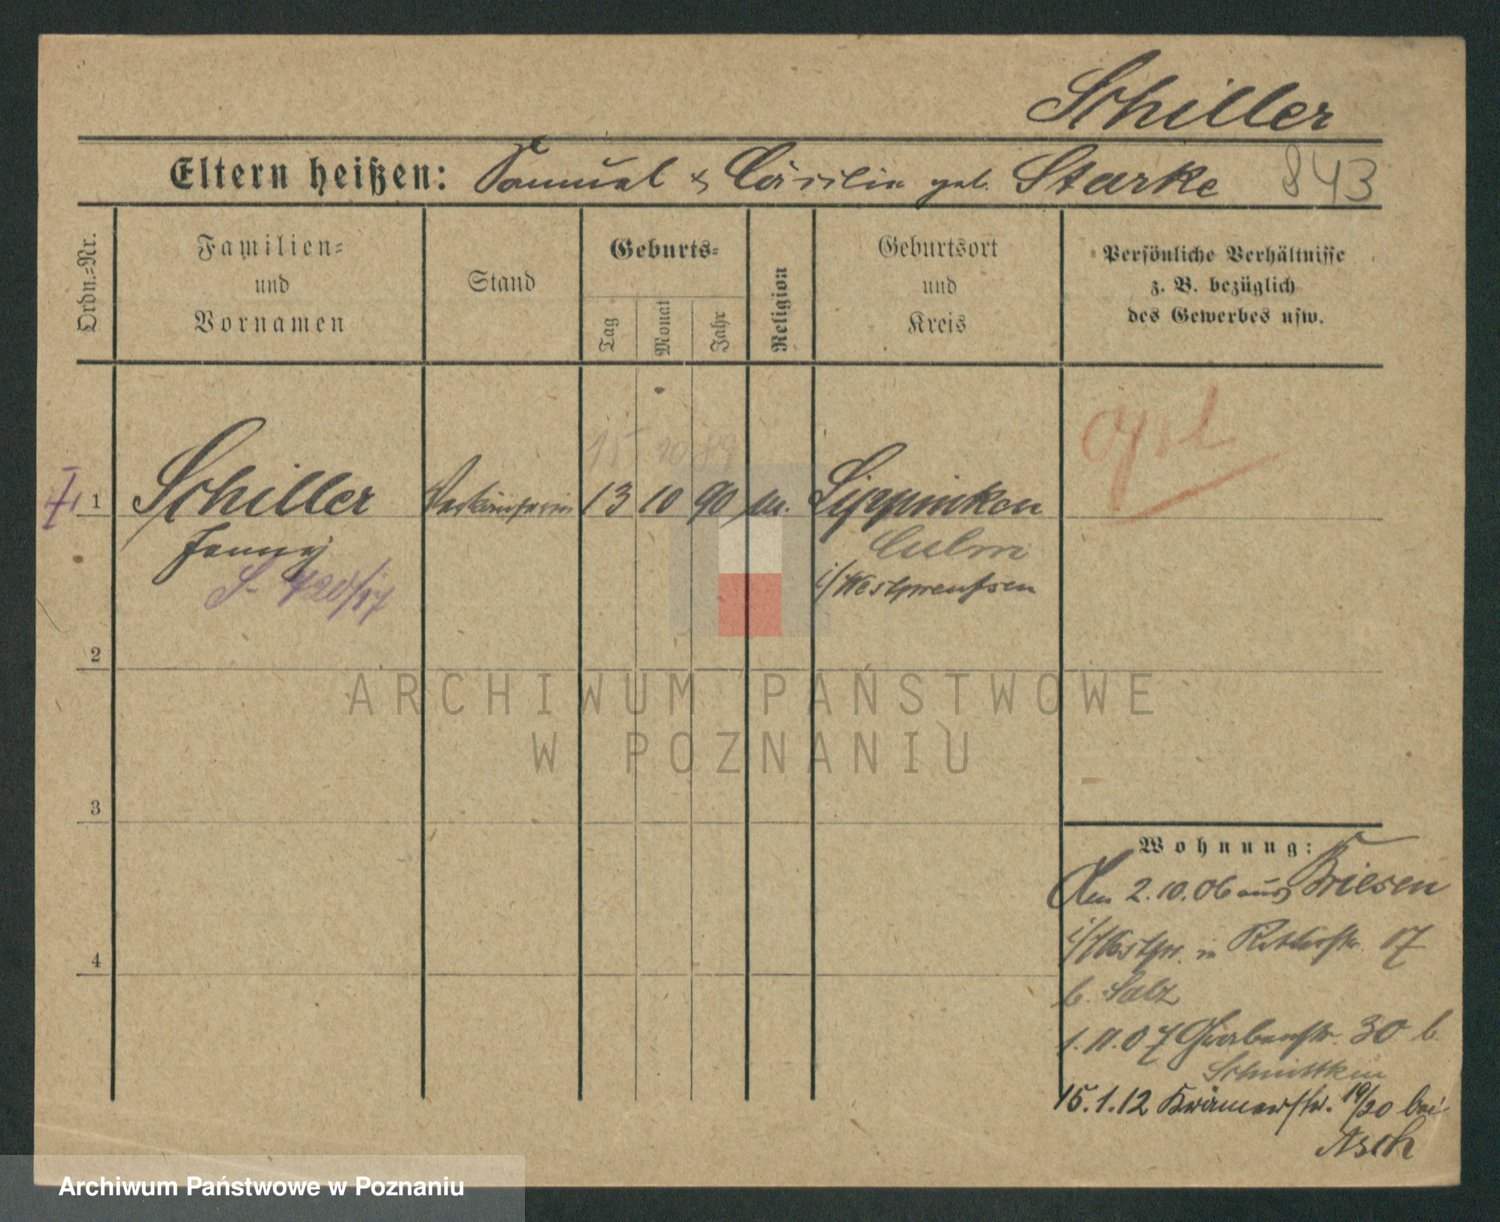 Schiller
Eltern heißen: Samuel & Cäcilie geb. Starke 843
Ordn.=Nr.
Familien=
und
Vornamen
Stand
Geburts=
Tag
Monat
Jahr
Religion
Geburtsort
und
Kreis
Persönliche Verhältnisse
z. B. bezüglich
des Gewerbes usw.
15 10 89
1 Schiller Verkäuferin 13 10 90 m. Lippinken
Fanny Culm
i/Westpreußen
2
3
4
Wohnung:
Am 2.10.06 aus Briesen
i/Westpr. in Ritterstr. 17
b. Salz
1.11.07 Grabenstr. 30 b.
15.1.12 Krämerstr. 19/20 bei
Asch
ARCHIWUM PAŃSTWOWE
W POZNANIU
Archiwum Państwowe w Poznaniu